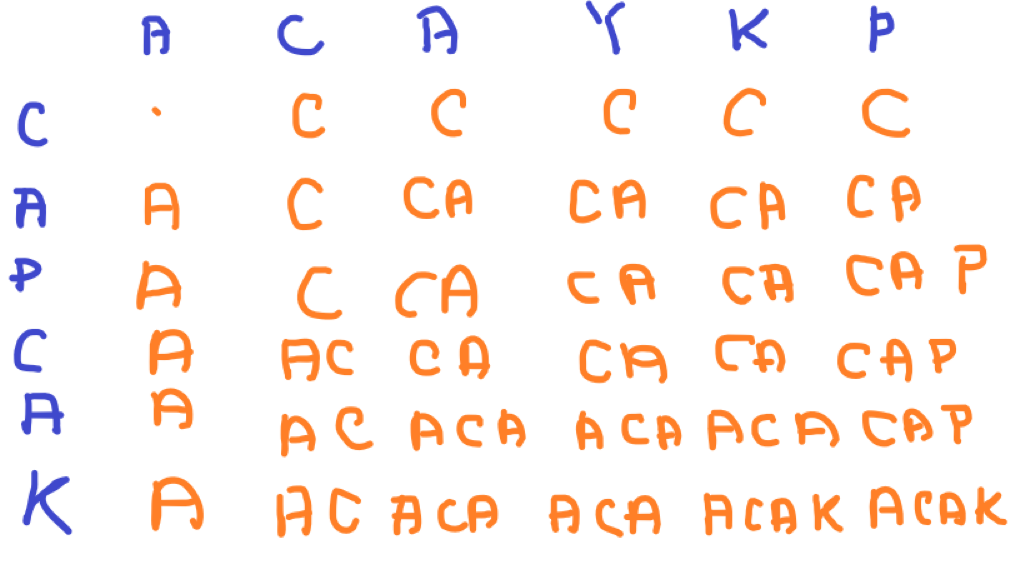 A C A Y K P
C . C C C C C
A A C CA CA CA CA
P A C CA CA CA CAP
C A AC CA CA CA CAP
A A AC ACA ACA ACA CAP
K A AC ACA ACA ACAK ACAK